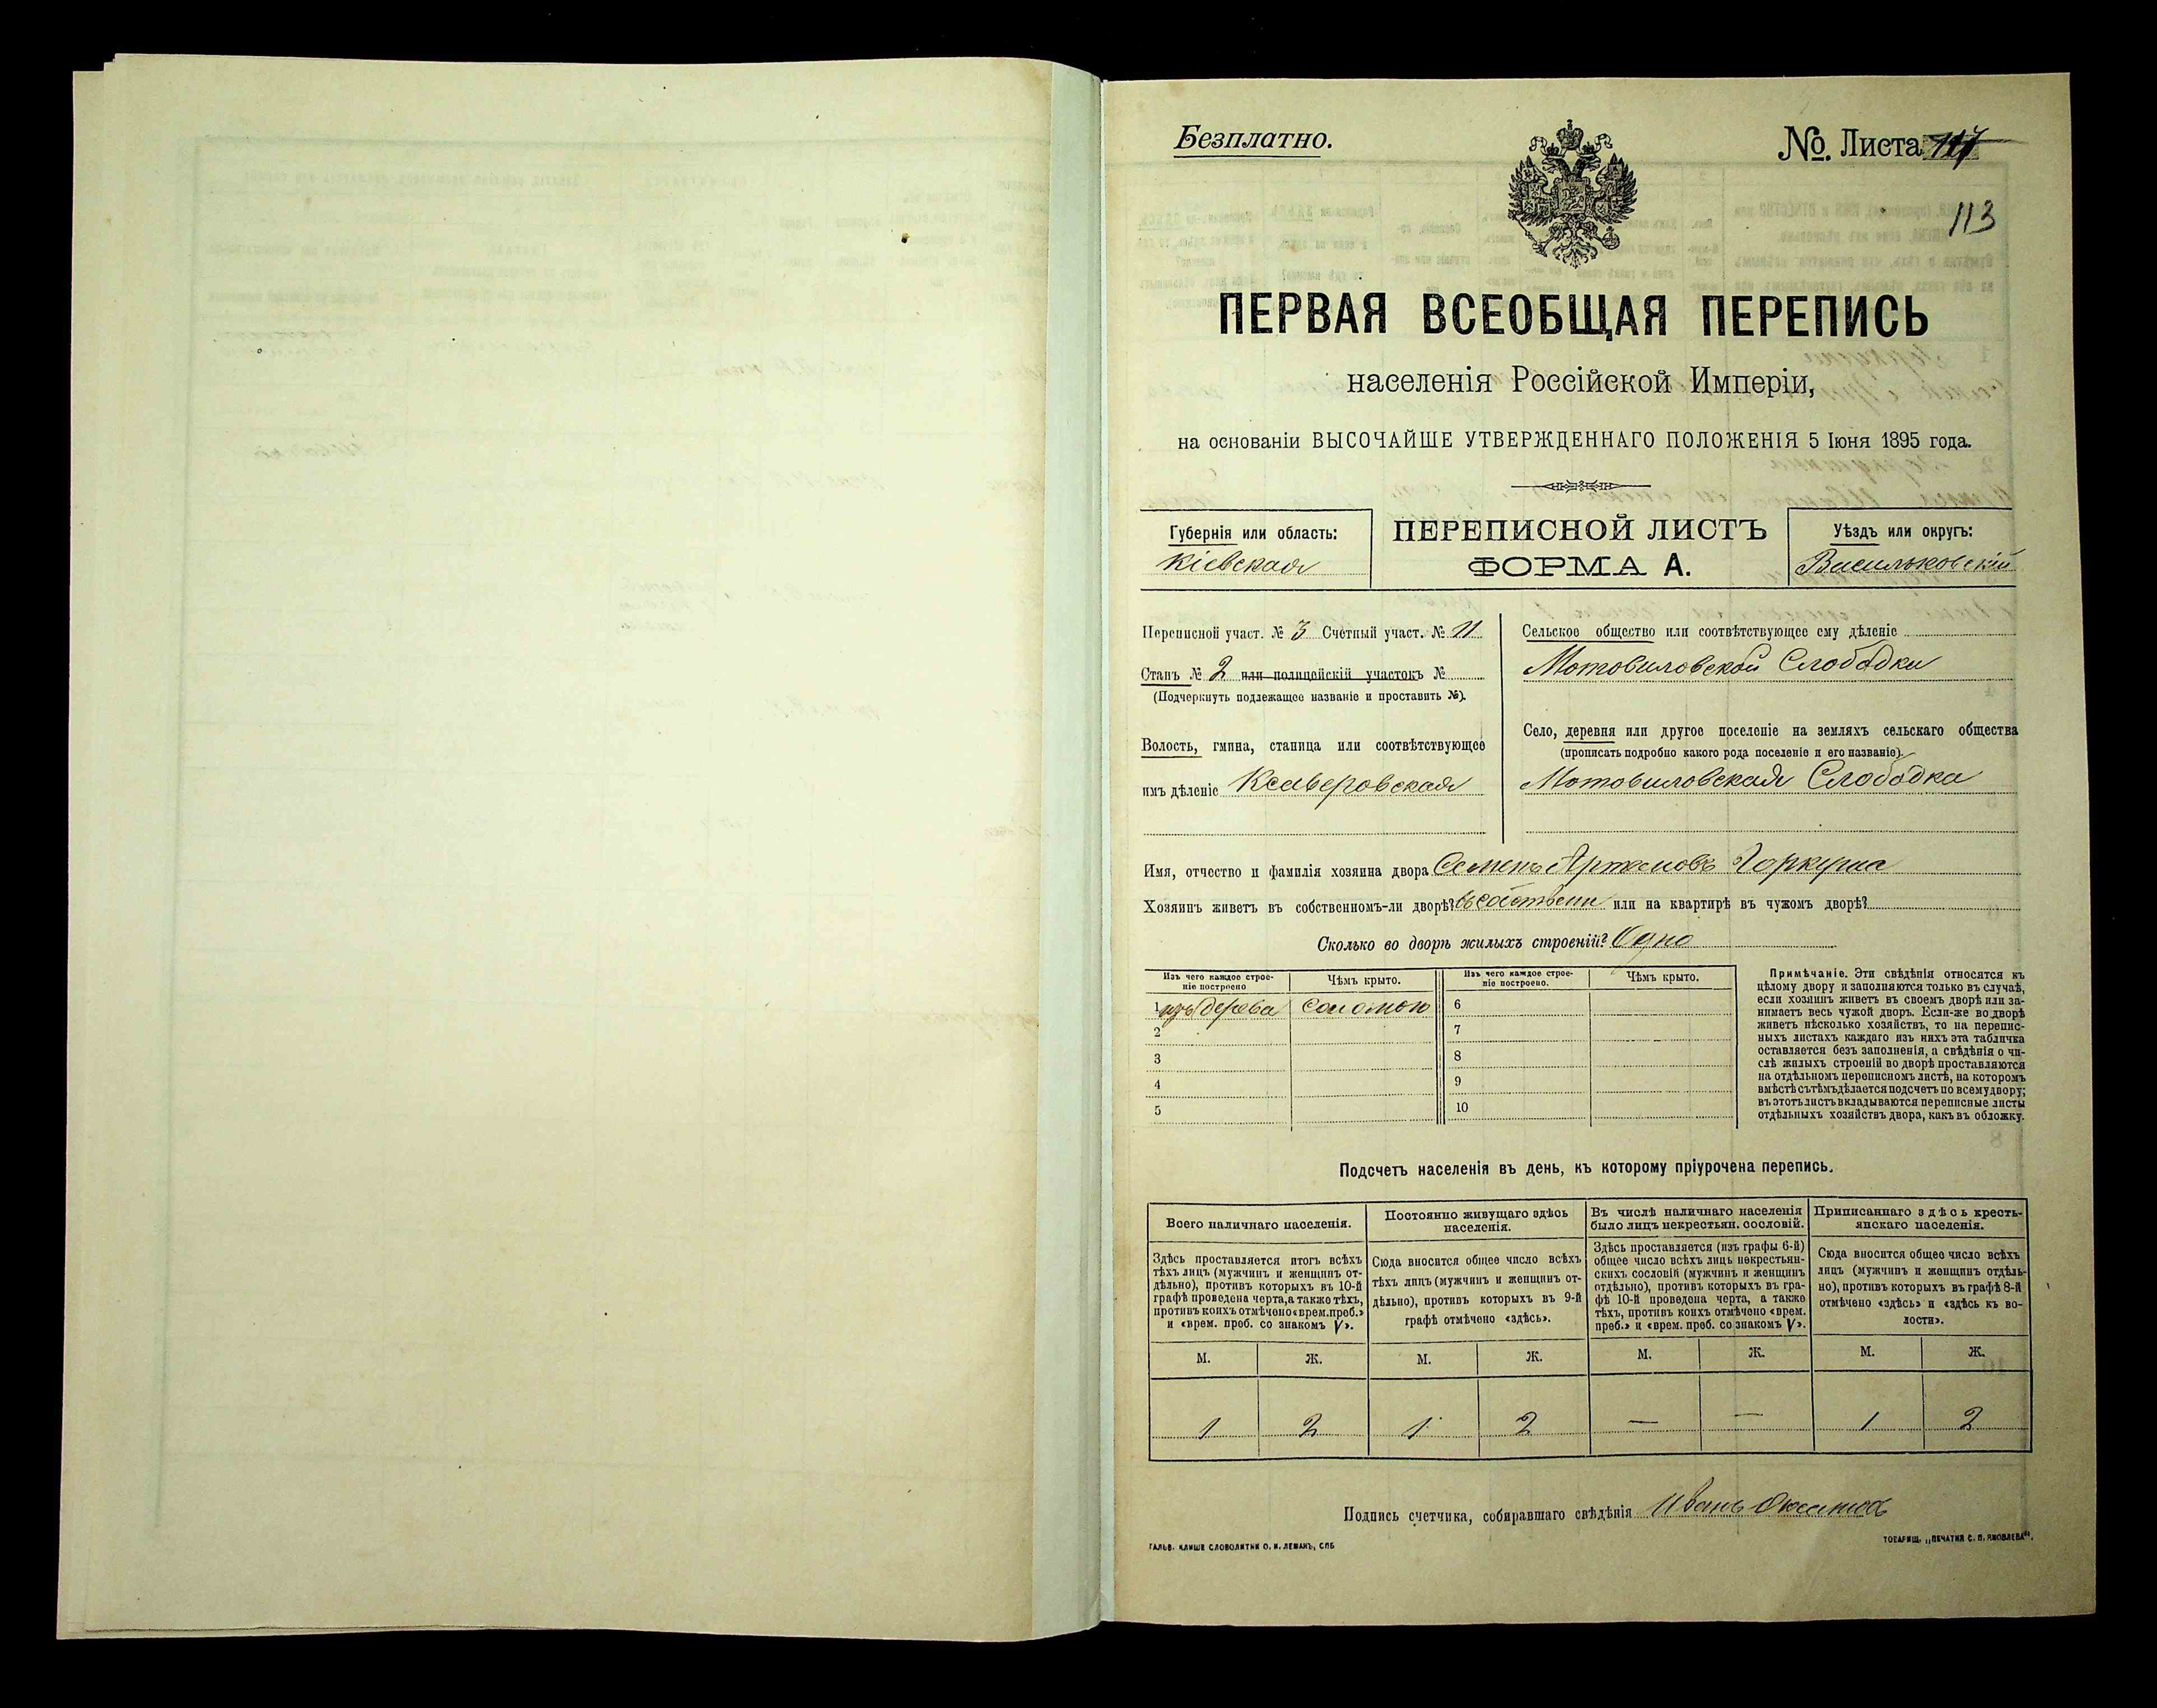 Безплатно.
№. Листа
113
ПЕРВАЯ ВСЕОБЩАЯ ПЕРЕПИСЬ
населенія Россійской Имперіи,
на основаніи ВЫСОЧАЙШЕ УТВЕРЖДЕННАГО ПОЛОЖЕНІЯ 5 Іюня 1895 года.
Губернія или область:
Кіевская
ПЕРЕПИСНОЙ ЛИСТЪ
ФОРМА А.
Уѣздъ или округъ:
Васильковскій
Переписной участ. № 3 Счетный участ. № 11
Станъ № 2 или полицейскій участокъ №
(Подчеркнуть подлежащее названіе и проставить №).
Волость, гмина, станица или соотвѣтствующее
имъ дѣленіе Ксаверовская
Сельское общество или соотвѣтствующее ему дѣленіе
Мотовиловской Слободки
Село, деревня или другое поселеніе на земляхъ сельскаго общества
(прописать подробно какого рода поселеніе и его названіе).
Мотовиловская Слободка
Имя, отчество и фамилія хозяина двора Семенъ Артемовъ Горкуша
Хозяинъ живетъ въ собственномъ-ли дворѣ? въ собствен или на квартирѣ въ чужомъ дворѣ?
Сколько во дворѣ жилыхъ строеній? Одно
Изъ чего каждое строе-
ніе построено
Чѣмъ крыто.
Изъ чего каждое строе-
ніе построено.
Чѣмъ крыто.
1 изъ дерева соломою 6
2 7
3 8
4 9
5 10
Примѣчаніе. Эти свѣдѣнія относятся къ
цѣлому двору и заполняются только въ случаѣ,
если хозяинъ живетъ въ своемъ дворѣ или за-
нимаетъ весь чужой дворъ. Если-же во дворѣ
живетъ нѣсколько хозяйствъ, то на перепис-
ныхъ листахъ каждаго изъ нихъ эта табличка
оставляется безъ заполненія, а свѣдѣнія о чи-
слѣ жилыхъ строеній во дворѣ проставляются
на отдѣльномъ переписномъ листѣ, на которомъ
вмѣстѣ съ тѣмъ дѣлается подсчетъ по всему двору;
въ этотъ листъ вкладываются переписные листы
отдѣльныхъ хозяйствъ двора, какъ въ обложку.
Подсчетъ населенія въ день, къ которому пріурочена перепись.
Всего наличнаго населенія.
Здѣсь проставляется итогъ всѣхъ
тѣхъ лицъ (мужчинъ и женщинъ от-
дѣльно), противъ которыхъ въ 10-й
графѣ проведена черта, а также тѣхъ,
противъ коихъ отмѣчено «врем. преб.»
и «врем. преб. со знакомъ V».
Постоянно живущаго здѣсь
населенія.
Сюда вносится общее число всѣхъ
тѣхъ лицъ (мужчинъ и женщинъ от-
дѣльно), противъ которыхъ въ 9-й
графѣ отмѣчено «здѣсь».
Въ числѣ наличнаго населенія
было лицъ некрестьян. сословій.
Здѣсь проставляется (изъ графы 6-й)
общее число всѣхъ лицъ некрестьян-
скихъ сословій (мужчинъ и женщинъ
отдѣльно), противъ которыхъ въ гра-
фѣ 10-й проведена черта, а также
тѣхъ, противъ коихъ отмѣчено «врем.
преб.» и «врем. преб. со знакомъ V».
Приписаннаго здѣсь кресть-
янскаго населенія.
Сюда вносится общее число всѣхъ
лицъ (мужчинъ и женщинъ отдѣль-
но), противъ которыхъ въ графѣ 8-й
отмѣчено «здѣсь» и «здѣсь къ во-
лости».
М. Ж. М. Ж. М. Ж. М. Ж.
1 2 1 2 — — 1 2
Подпись счетчика, собиравшаго свѣдѣнія Иванъ
ГАЛЬВ. КЛИШЕ СЛОВОЛИТНИ О. И. ЛЕМАНЪ, СПБ
ТОВАРИЩ. „ПЕЧАТНЯ С. П. ЯКОВЛЕВА“.